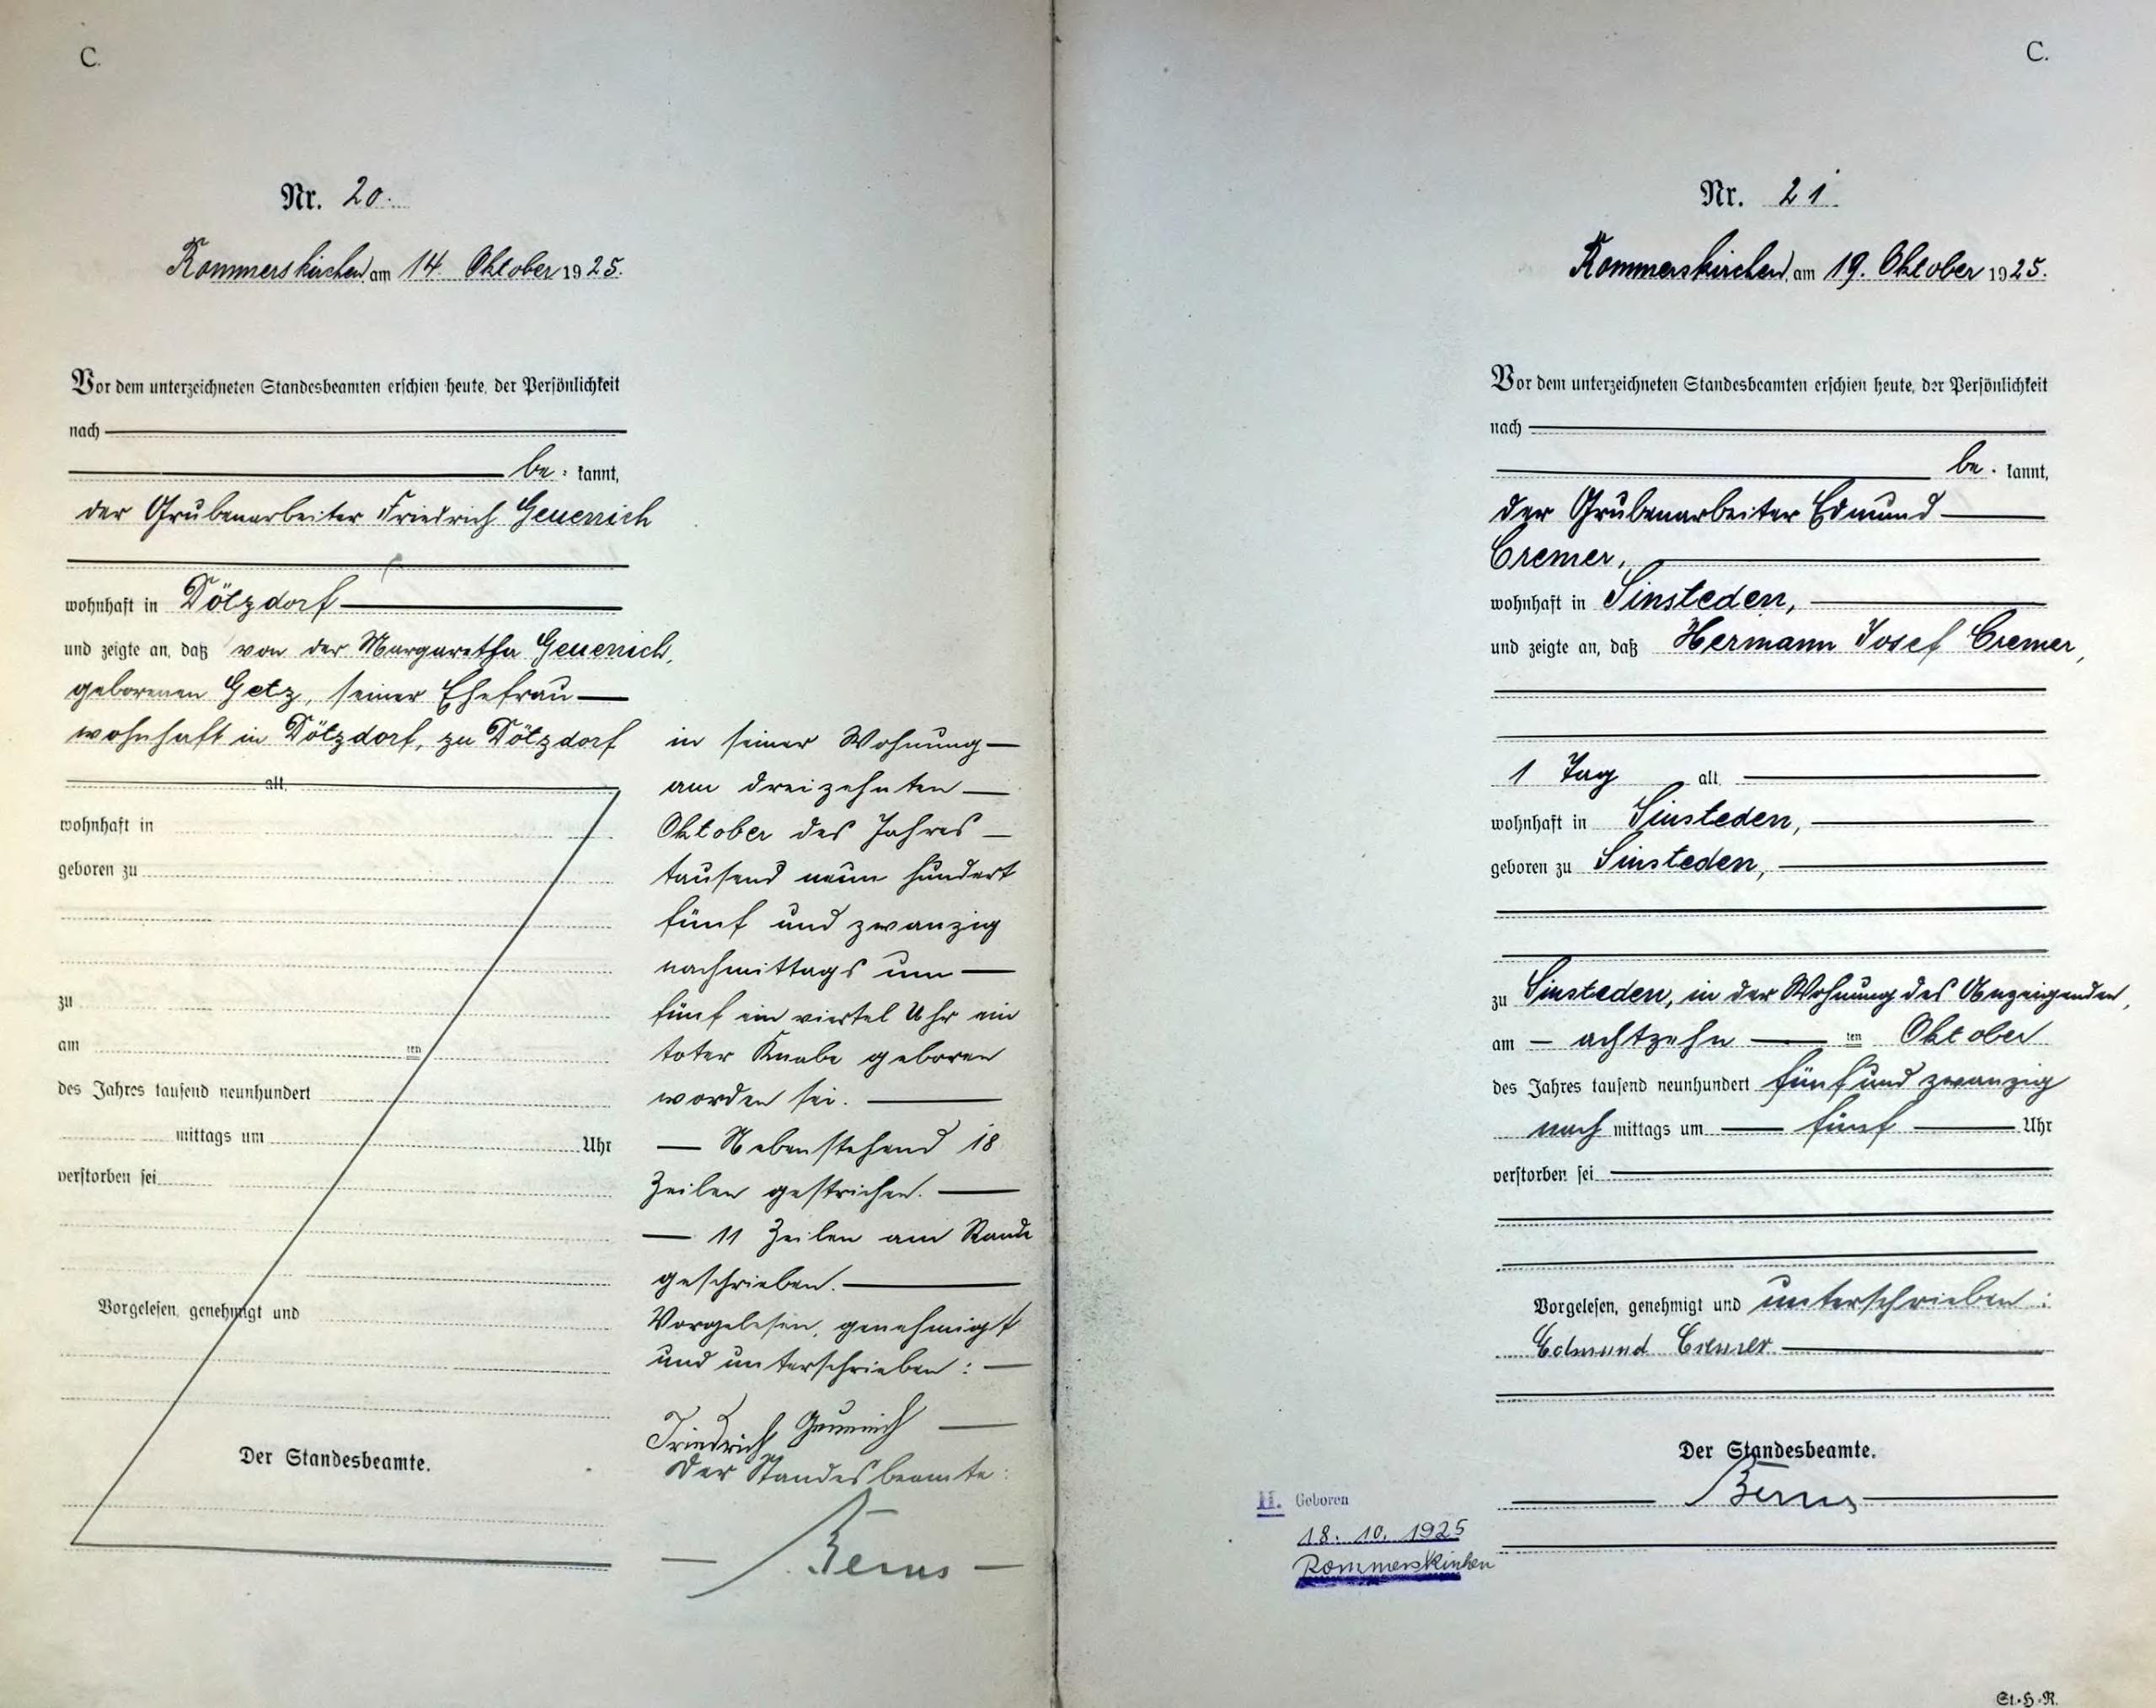 C.
Nr. 20.
Rommerskirchen, am 14. Oktober 1925.
Vor dem unterzeichneten Standesbeamten erschien heute, der Persönlichkeit
nach
be = kannt,
der Grubenarbeiter Friedrich Geuenich
wohnhaft in Dötzdorf
und zeigte an, daß von der Margaretha Geuenich,
geborenen Getz, seiner Ehefrau
wohnhaft in Dötzdorf, zu Dötzdorf
alt,
wohnhaft in
geboren zu
zu
am ten
des Jahres tausend neunhundert
mittags um Uhr
verstorben sei
Vorgelesen, genehmigt und
Der Standesbeamte.
in seiner Wohnung
am dreizehnten
Oktober des Jahres
tausend neun hundert
fünf und zwanzig
nachmittags um
fünf ein viertel Uhr ein
toter Knabe geboren
worden sei.
Nebenstehend 18
Zeilen gestrichen.
11 Zeilen am Rande
geschrieben.
Vorgelesen, genehmigt
und unterschrieben:
Friedrich Geuenich
Der Standesbeamte:
Berns
C.
Nr. 21
Rommerskirchen, am 19. Oktober 1925.
Vor dem unterzeichneten Standesbeamten erschien heute, der Persönlichkeit
nach
be = kannt,
der Grubenarbeiter Edmund
Cremer,
wohnhaft in Sinsteden,
und zeigte an, daß Hermann Josef Cremer,
1 Tag alt,
wohnhaft in Sinsteden,
geboren zu Sinsteden,
zu Sinsteden, in der Wohnung des Anzeigenden,
am achtzehn ten Oktober
des Jahres tausend neunhundert fünf und zwanzig
nach mittags um fünf Uhr
verstorben sei
Vorgelesen, genehmigt und unterschrieben:
Edmund Cremer
Der Standesbeamte.
Berns
H. Geboren
18. 10. 1925
Rommerskirchen
St.H.R.